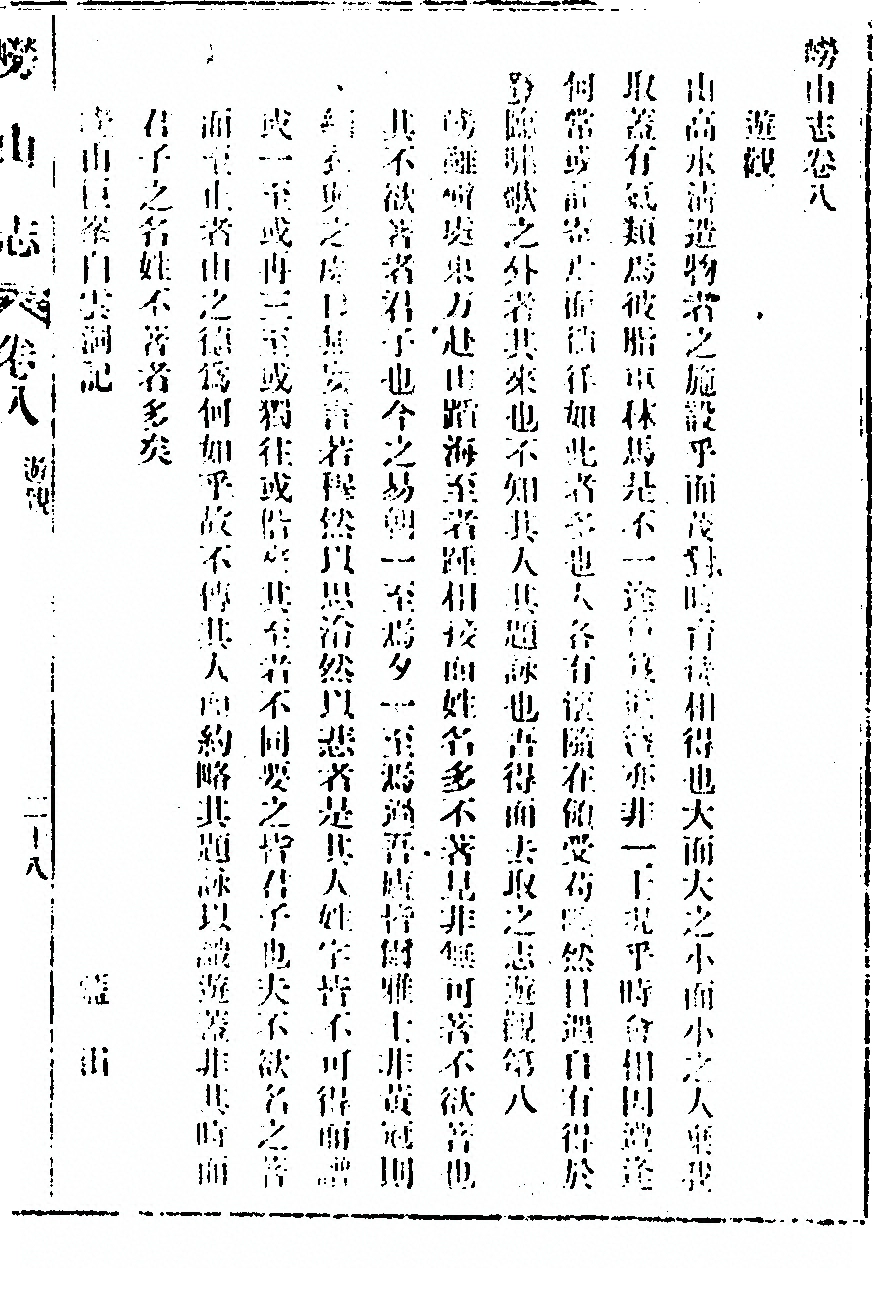 嶗山志卷八
遊觀
山高水清造物者之施設乎而茂對時育徒相得也大而大之小而小之人棄我
取蓋有氣類焉彼脂車秣馬是不一途亦非一士況乎時會相因遭逢
何常或而如此者多也人各有懷隨在領受苟然日過自有得於
登臨嘯歌之外者其來也不知其人其題詠也吾得而去取之志遊觀第八
處東方赴山蹈海至者踵相接而姓名多不著見非無可著不欲著也
其不欲著者君子也今之易朝一至焉夕一至焉過吾廬皆爾雅士非黃冠則
與之無妄言若穆然以思洽然以悲者是其人姓字皆不可得而譜
或一至或再三至或獨往或偕來其至者不同要之皆君子也夫不欲名之著
而至止者山之德為何如乎故不傳其人而約略其題詠以識遊蓋非其時而
君子之名姓不著者多矣
嶗山巨峯白雲洞記 藍田
嶗山志 卷八 遊觀 二十八